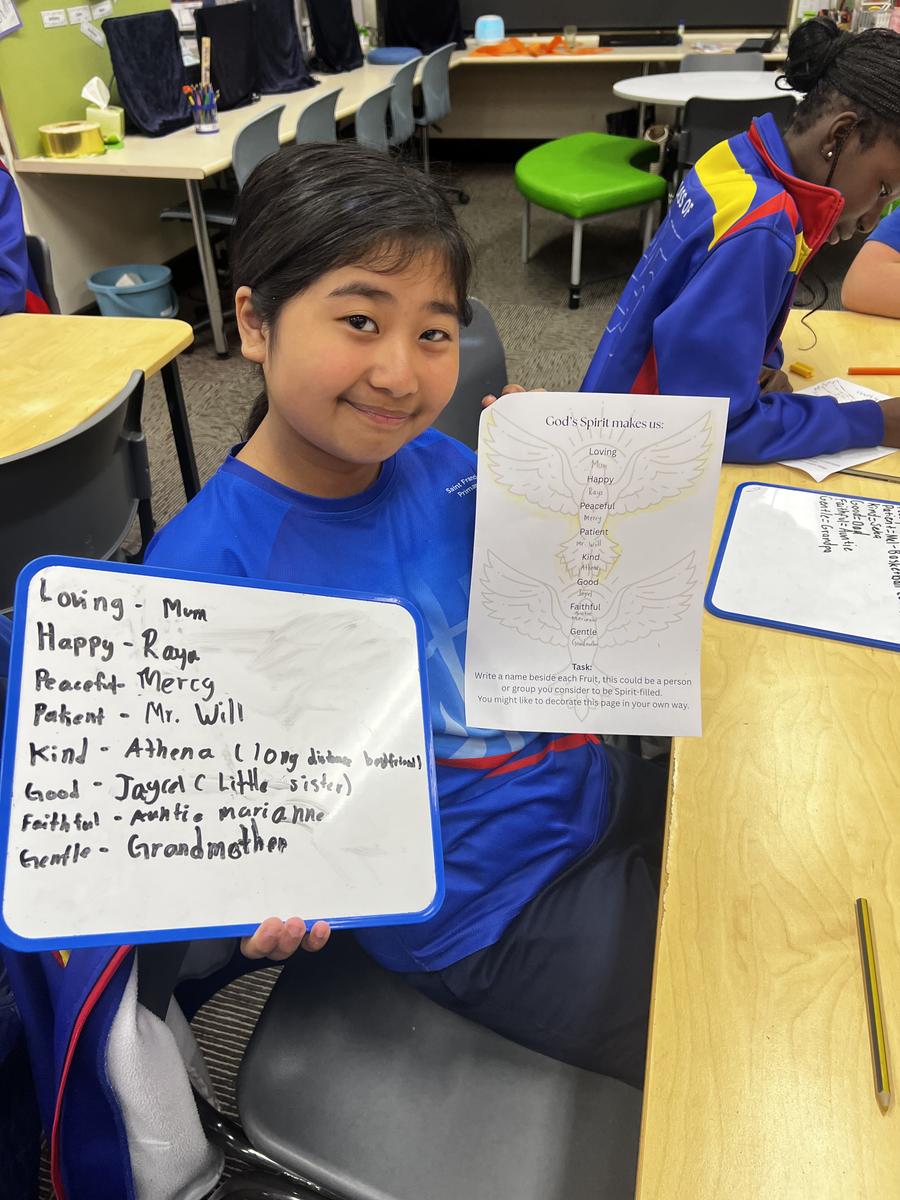 Loving - Mum
Happy - Raya
Peaceful - Mercy
Patient - Mr. Will
Kind - Athena (long distance bestfriend)
Good - Jaycel (Little sister)
Faithful - Auntie marianne
Gentle - Grandmother
Saint Franc
Prima
God's Spirit makes us:
Loving
Mum
Happy
Raya
Peaceful
Mercy
Patient
Mr. Will
Kind
Athena
Good
Jaycel
Faithful
Gentle
Grandmother
Task:
Write a name beside each Fruit, this could be a person
or group you consider to be Spirit-filled.
You might like to decorate this page in your own way.
SS OF
Kind=Seka
Good=Dad
Faithful=Auntie
Gentle=Grandpa